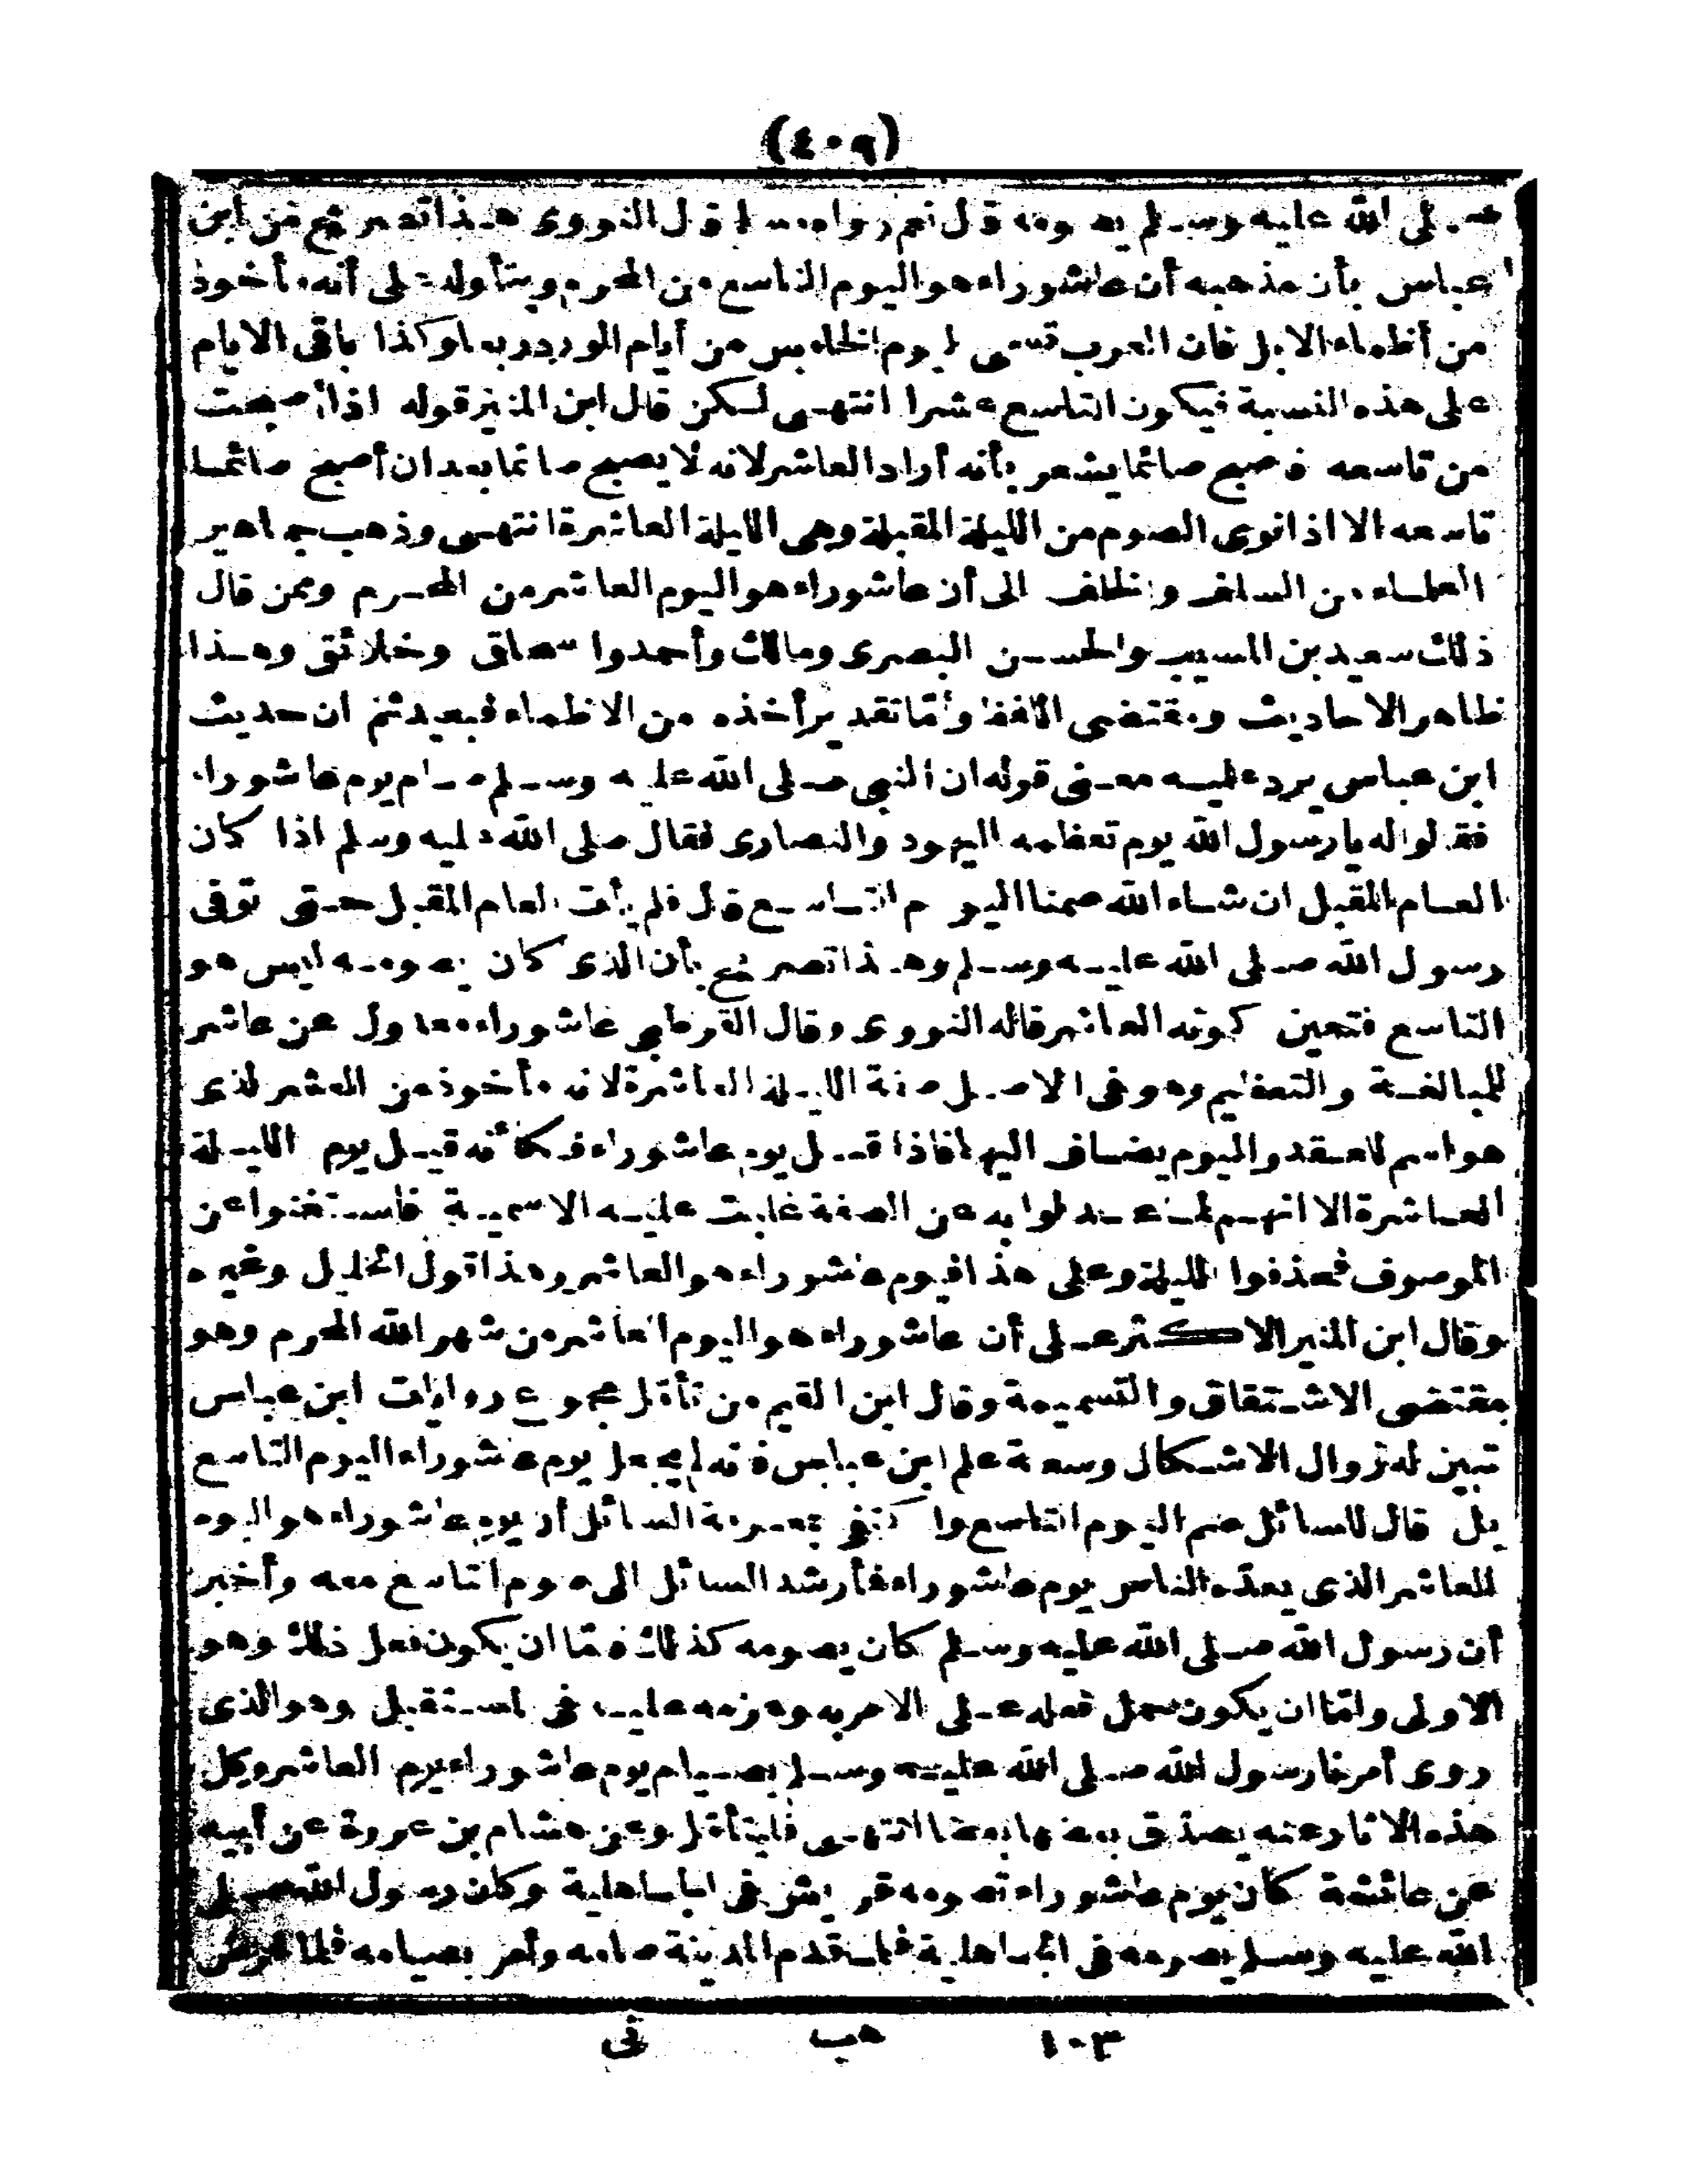 (٤٠٩)
صلى الله عليه وسلم يصومه قال نعم رواه مسلم قال النووى هذا تصريح من ابن
عباس بأن مذهبه أن عاشوراء هو اليوم التاسع من المحرم ويتأوله على أنه مأخوذ
من أظماء الابل فان العرب تسمى اليوم الخامس من أيام الورد ربعا وكذا باقى الايام
على هذه النسبة فيكون التاسع عشرا انتهى لكن قال ابن المنير قوله اذا أصبحت
من تاسعه فاصبح صائما يشعر بأنه أراد العاشر لانه لا يصبح صائما بعد ان أصبح صائما
تاسعه الا اذا نوى الصوم من الليلة المقبلة وهى الليلة العاشرة انتهى وذهب جماهير
العلماء من السلف والخلف الى أن عاشوراء هو اليوم العاشر من المحرم وممن قال
ذلك سعيد بن المسيب والحسن البصرى ومالك وأحمد واسحاق وخلائق وهذا
ظاهر الاحاديث ومقتضى اللفظ وأما تقدير أخذه من الاظماء فبعيد ثم ان حديث
ابن عباس يرد عليه معنى قوله ان النبى صلى الله عليه وسلم صام يوم عاشوراء
فقالوا له يا رسول الله يوم تعظمه اليهود والنصارى فقال صلى الله عليه وسلم اذا كان
العام المقبل ان شاء الله صمنا اليوم التاسع قال فلم يأت العام المقبل حتى توفى
رسول الله صلى الله عليه وسلم وهذا تصريح بأن الذى كان يصومه ليس هو
التاسع فتعين كونه العاشر قاله النووى وقال القرطبى عاشوراء معدول عن عاشر
للمبالغة والتعظيم وهو فى الاصل صفة الليلة العاشرة لانه مأخوذ من العشر الذى
هو اسم للعقد واليوم يضاف اليها فاذا قيل يوم عاشوراء فكأنه قيل يوم الليلة
العاشرة الا انهم لما عدلوا به عن الصفة غلبت عليه الاسمية فاستغنوا عن
الموصوف فحذفوا الليلة وعلى هذا فيوم عاشوراء هو العاشر وهذا قول الخليل وغيره
وقال ابن المنير الاكثر على أن عاشوراء هو اليوم العاشر من شهر الله المحرم وهو
مقتضى الاشتقاق والتسمية وقال ابن القيم من تأمل مجموع روايات ابن عباس
تبين له زوال الاشكال وسعة علم ابن عباس فانه لم يجعل يوم عاشوراء اليوم التاسع
بل قال للسائل صم اليوم التاسع واكتفى بمعرفة السائل أن يوم عاشوراء هو اليوم
العاشر الذى يعده الناس يوم عاشوراء فأرشد السائل الى صوم التاسع معه وأخبر
أن رسول الله صلى الله عليه وسلم كان يصومه كذلك فاما ان يكون فعل ذلك وهو
الاولى واما ان يكون حمل فعله على الامر به وعزمه عليه فى المستقبل وهو الذى
روى أمرنا رسول الله صلى الله عليه وسلم بصيام يوم عاشوراء يوم العاشر وكل
هذه الاثار عنه يصدق بعضها بعضا انتهى فليتأمل وعن هشام بن عروة عن أبيه
عن عائشة كان يوم عاشوراء تصومه قريش فى الجاهلية وكان رسول الله صلى
الله عليه وسلم يصومه فى الجاهلية فلما قدم المدينة صامه وأمر بصيامه فلما فرض
١٠٣ هب نى